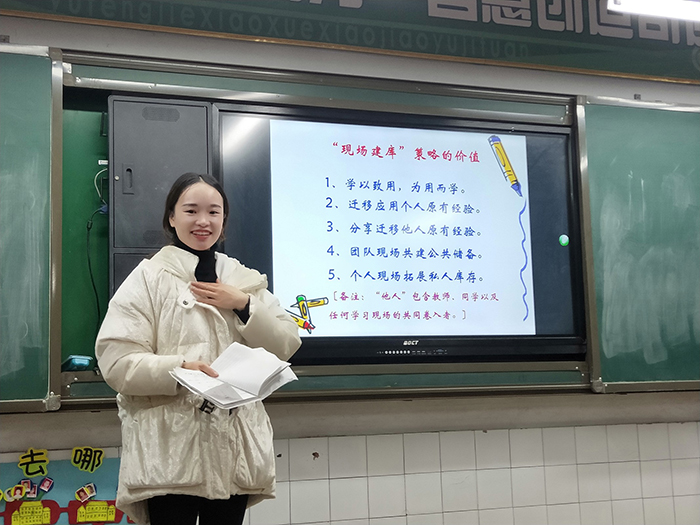 yufengjiexiaoxuexiaojiaoyujituan
“现场建库”策略的价值
1、学以致用，为用而学。
2、迁移应用个人原有经验。
3、分享迁移他人原有经验。
4、团队现场共建公共储备。
5、个人现场拓展私人库存。
[备注：“他人”包含教师、同学以及
任何学习现场的共同卷入者。]
去哪